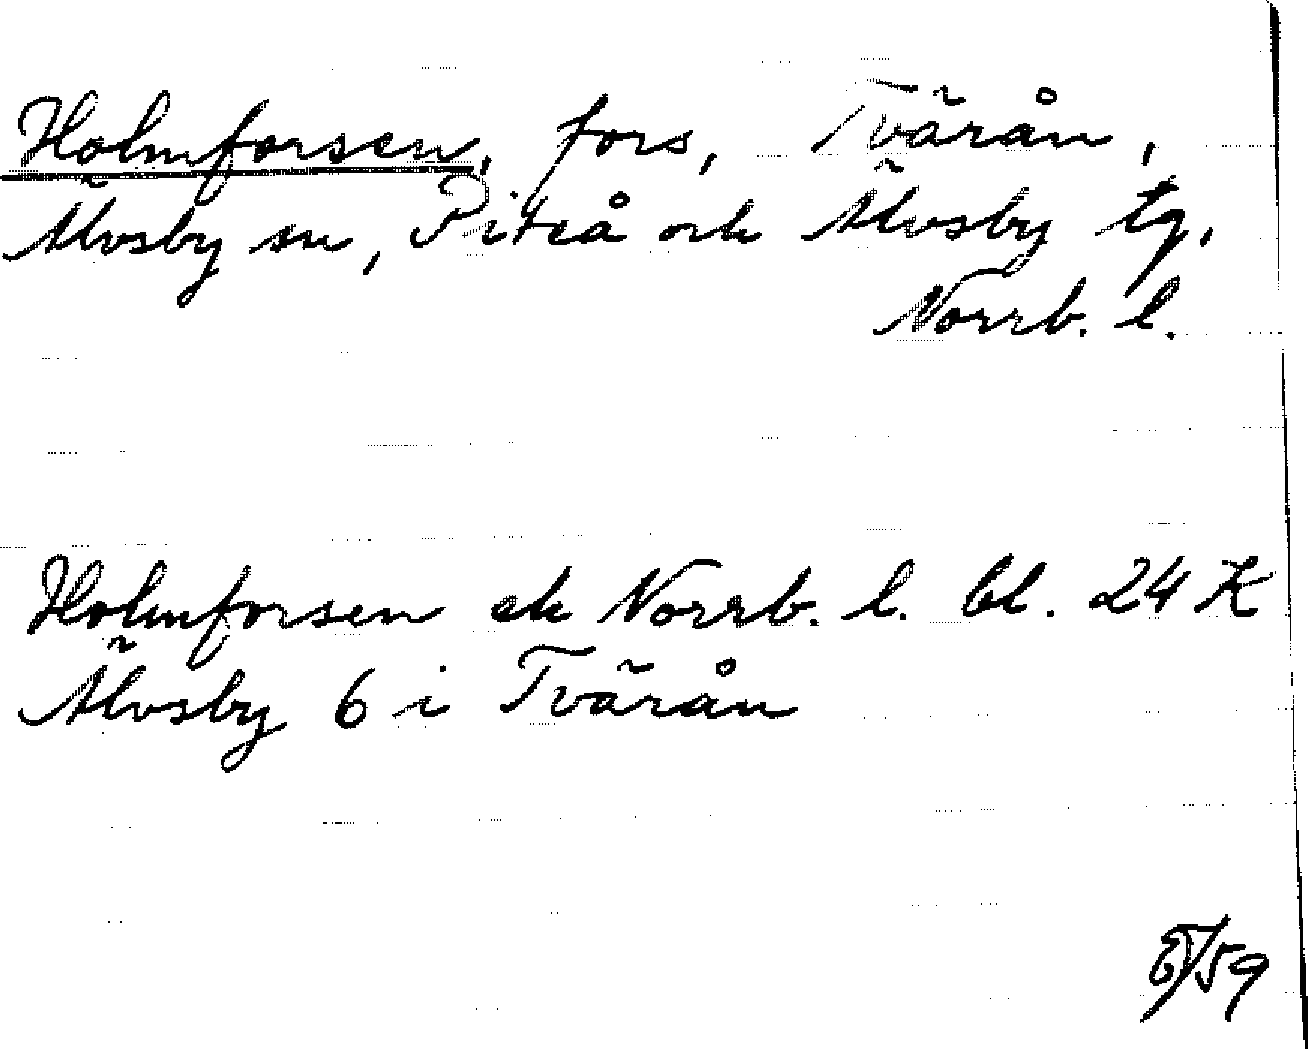 Holmforsen, fors, Tvärån,
Älvsby sn, Piteå och Älvsby tg,
Norrb. l.
Holmforsen ek Norrb. l. bl. 24 K
Älvsby 6 i Tvärån